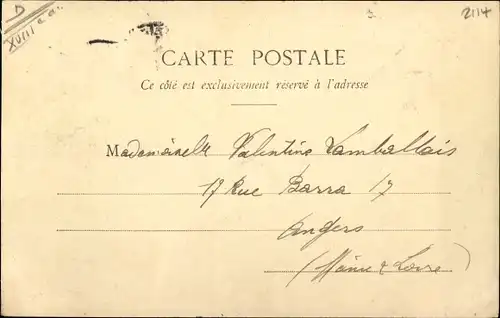 D
XVIII e a.
2114
CARTE POSTALE
Ce côté est exclusivement réservé à l'adresse
Mademoiselle Valentine Lamballais
17 Rue Barra 17
Angers
(Maine & Loire)